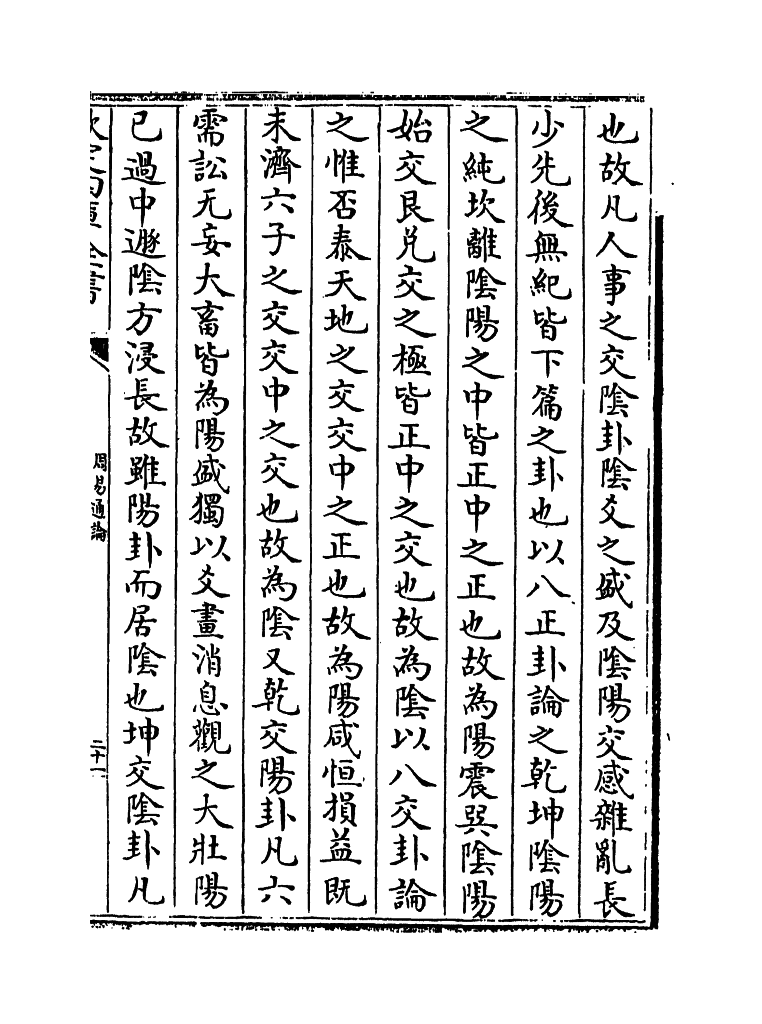 也故凡人事之交陰卦陰爻之盛及陰陽交感雜亂長
少先後無紀皆下篇之卦也以八正卦論之乾坤陰陽
之純坎離陰陽之中皆正中之正也故為陽震巽陰陽
始交艮兌交之極皆正中之交也故為陰以八交卦論
之惟否泰天地之交交中之正也故為陽咸恒損益既
未濟六子之交交中之交也故為陰又乾交陽卦凡六
需訟无妄大畜皆為陽盛獨以爻畫消息觀之大壯陽
已過中遯陰方浸長故雖陽卦而居陰也坤交陰卦凡
周易通論
二十一